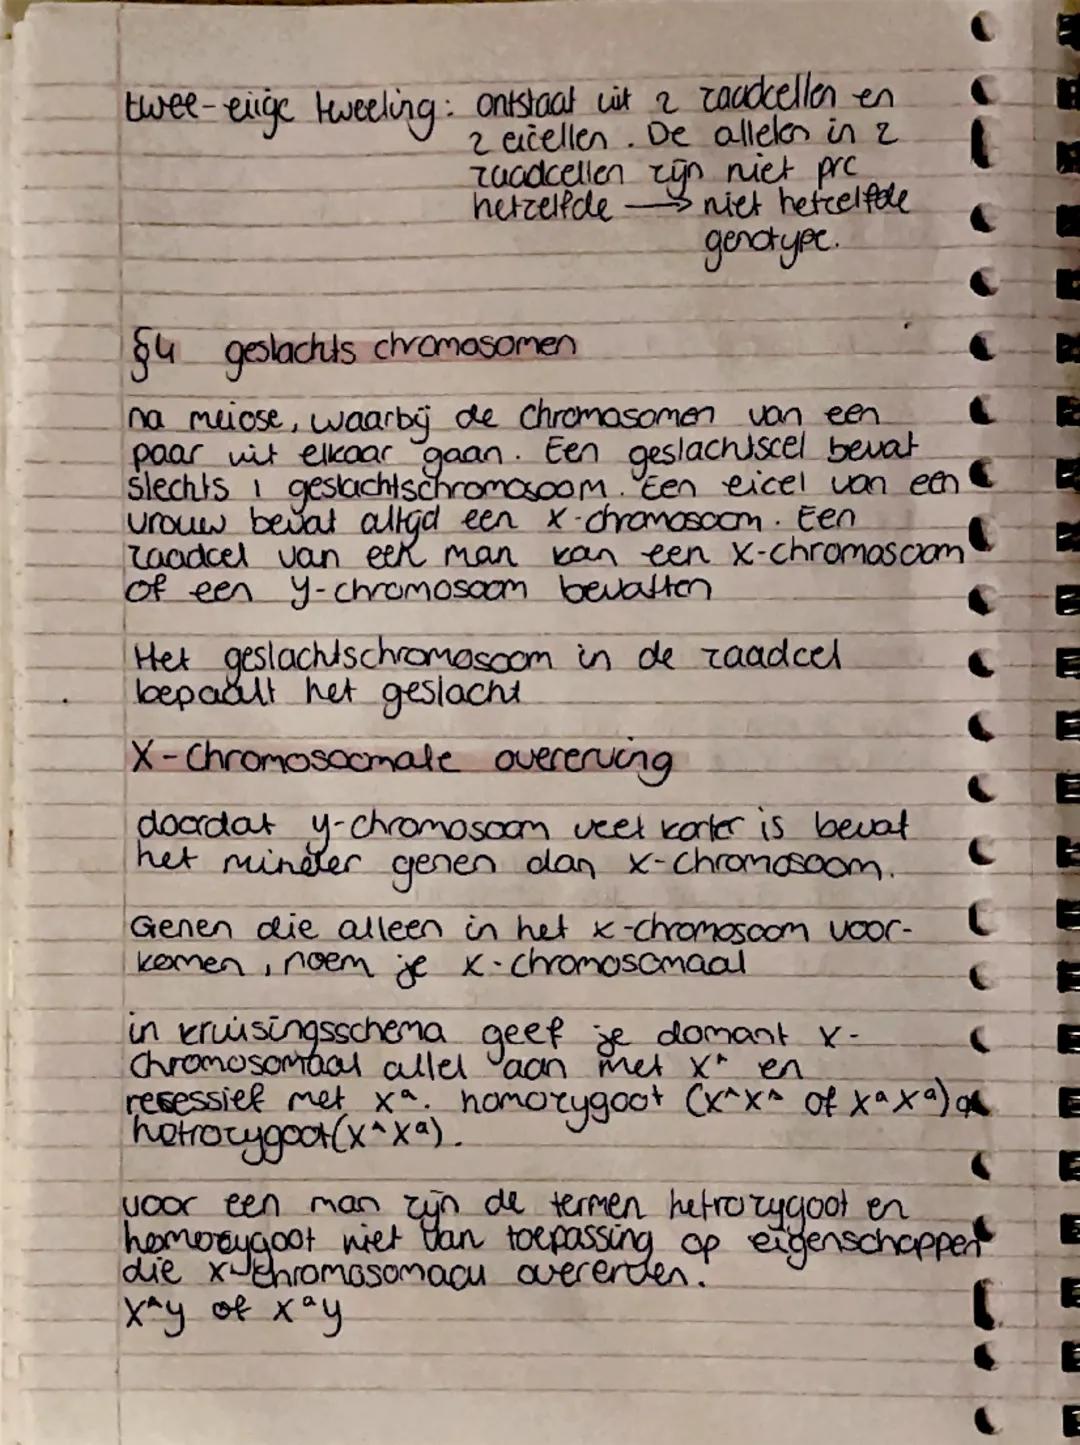 twee-eiige tweeling: ontstaat uit 2 zaadcellen en
2 eicellen. De allelen in 2
zaadcellen zijn niet prc
hetzelfde → niet hetzelfde
genotype.
§4 geslachts chromosomen
na meiose, waarbij de chromosomen van een
paar uit elkaar gaan. Een geslachtscel bevat
slechts 1 geslachtschromosoom. Een eicel van een
vrouw bevat altijd een X-chromosoom. Een
zaadcel van een man kan een X-chromosoom
of een y-chromosoom bevatten
Het geslachtschromosoom in de zaadcel
bepaalt het geslacht
X-Chromosoomale overerving
doordat y-chromosoom veel korter is bevat
het minder genen dan x-chromosoom.
Genen die alleen in het x-chromosoom voor-
komen, noem je x-chromosomaal
in kruisingsschema geef je domant x-
chromosomaal allel aan met Xᴬ en
resessief met xᵃ. homozygoot (xᴬxᴬ of xᵃxᵃ) of
hetrozygoot (xᴬxᵃ).
voor een man zijn de termen hetrozygoot en
homozygoot niet van toepassing op eigenschappen
die x-chromosomaal overerven.
xᴬy of xᵃy